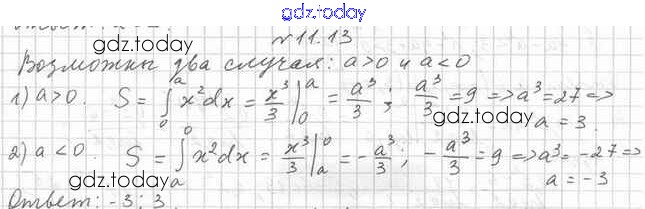 gdz.today
Ответ:
gdz.today
№ 11.13
Возможны два случая: a>0 и a<0
1) a>0. S = ∫₀ᵃ x²dx = x³/3 |₀ᵃ = a³/3; a³/3 = 9 => a³ = 27 =>
gdz.today
a = 3.
2) a<0. S = ∫ₐ⁰ x²dx = x³/3 |ₐ⁰ = -a³/3; -a³/3 = 9 => a³ = -27 =>
gdz.today
a = -3
Ответ: -3; 3
gdz.today